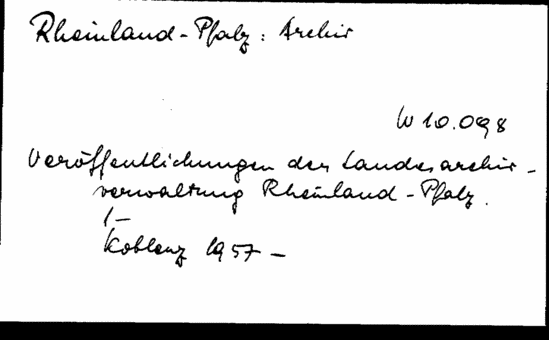 Rheinland-Pfalz: Archiv
W 10.098
Veröffentlichungen der Landesarchiv-
verwaltung Rheinland-Pfalz.
1-
Koblenz 1957-